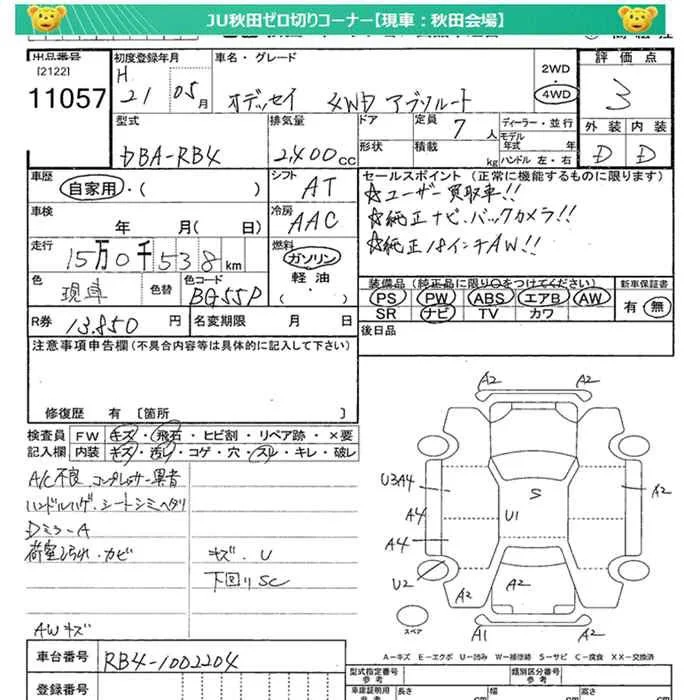 JU秋田ゼロ切りコーナー【現車：秋田会場】
出品番号 初度登録年月 車名・グレード 評価点
[2122] H 2WD
11057 21 05月 オデッセイ 4WD アブソルート 4WD 3
型式 排気量 ドア 定員 7人 ディーラー・並行 外装 内装
モデル年式 年
DBA-RB4 2,400cc 形状 積載 kg ハンドル 左・右 D D
車歴 シフト セールスポイント（正常に機能するものに限ります）
自家用・( ) AT ☆ユーザー買取車!!
車検 冷房 ☆純正ナビ.バックカメラ!!
年 月( 日) AAC ☆純正18インチAW!!
走行 燃料
15万0千538km ガソリン
色 色替 色コード 軽油・( ) 装備品（純正品に限り○をつけてください） 新車保証書
現車 BG55P PS PW ABS エアB AW 有・無
SR ナビ TV カワ
R券 13,850円 名変期限 月 日 後日品
注意事項申告欄（不具合内容等は具体的に記入して下さい）
修復歴 有 [箇所 ]
検査員 FW キズ・飛石・ヒビ割・リペア跡・×要
記入欄 内装 キズ・汚レ・コゲ・穴・スレ・キレ・破レ
A/C不良.コンプレッサー異音
ハンドルハゲ.シートシミヘタリ
Dミラ-A
荷室汚れ.カビ キズ.U
下回りSC
AWキズ
A2 A2
U3A4 S A2
A4 U1
A4
U2 A2 A2 A2
スペア A1 A2
A－キズ E－エクボ U－凹み W－補修跡 S－サビ C－腐食 XX－交換済
車台番号 RB4-1002204
型式指定番号 参考 類別区分番号 参考
登録番号 車庫証明用 参考 長さ cm 幅 cm 高さ cm